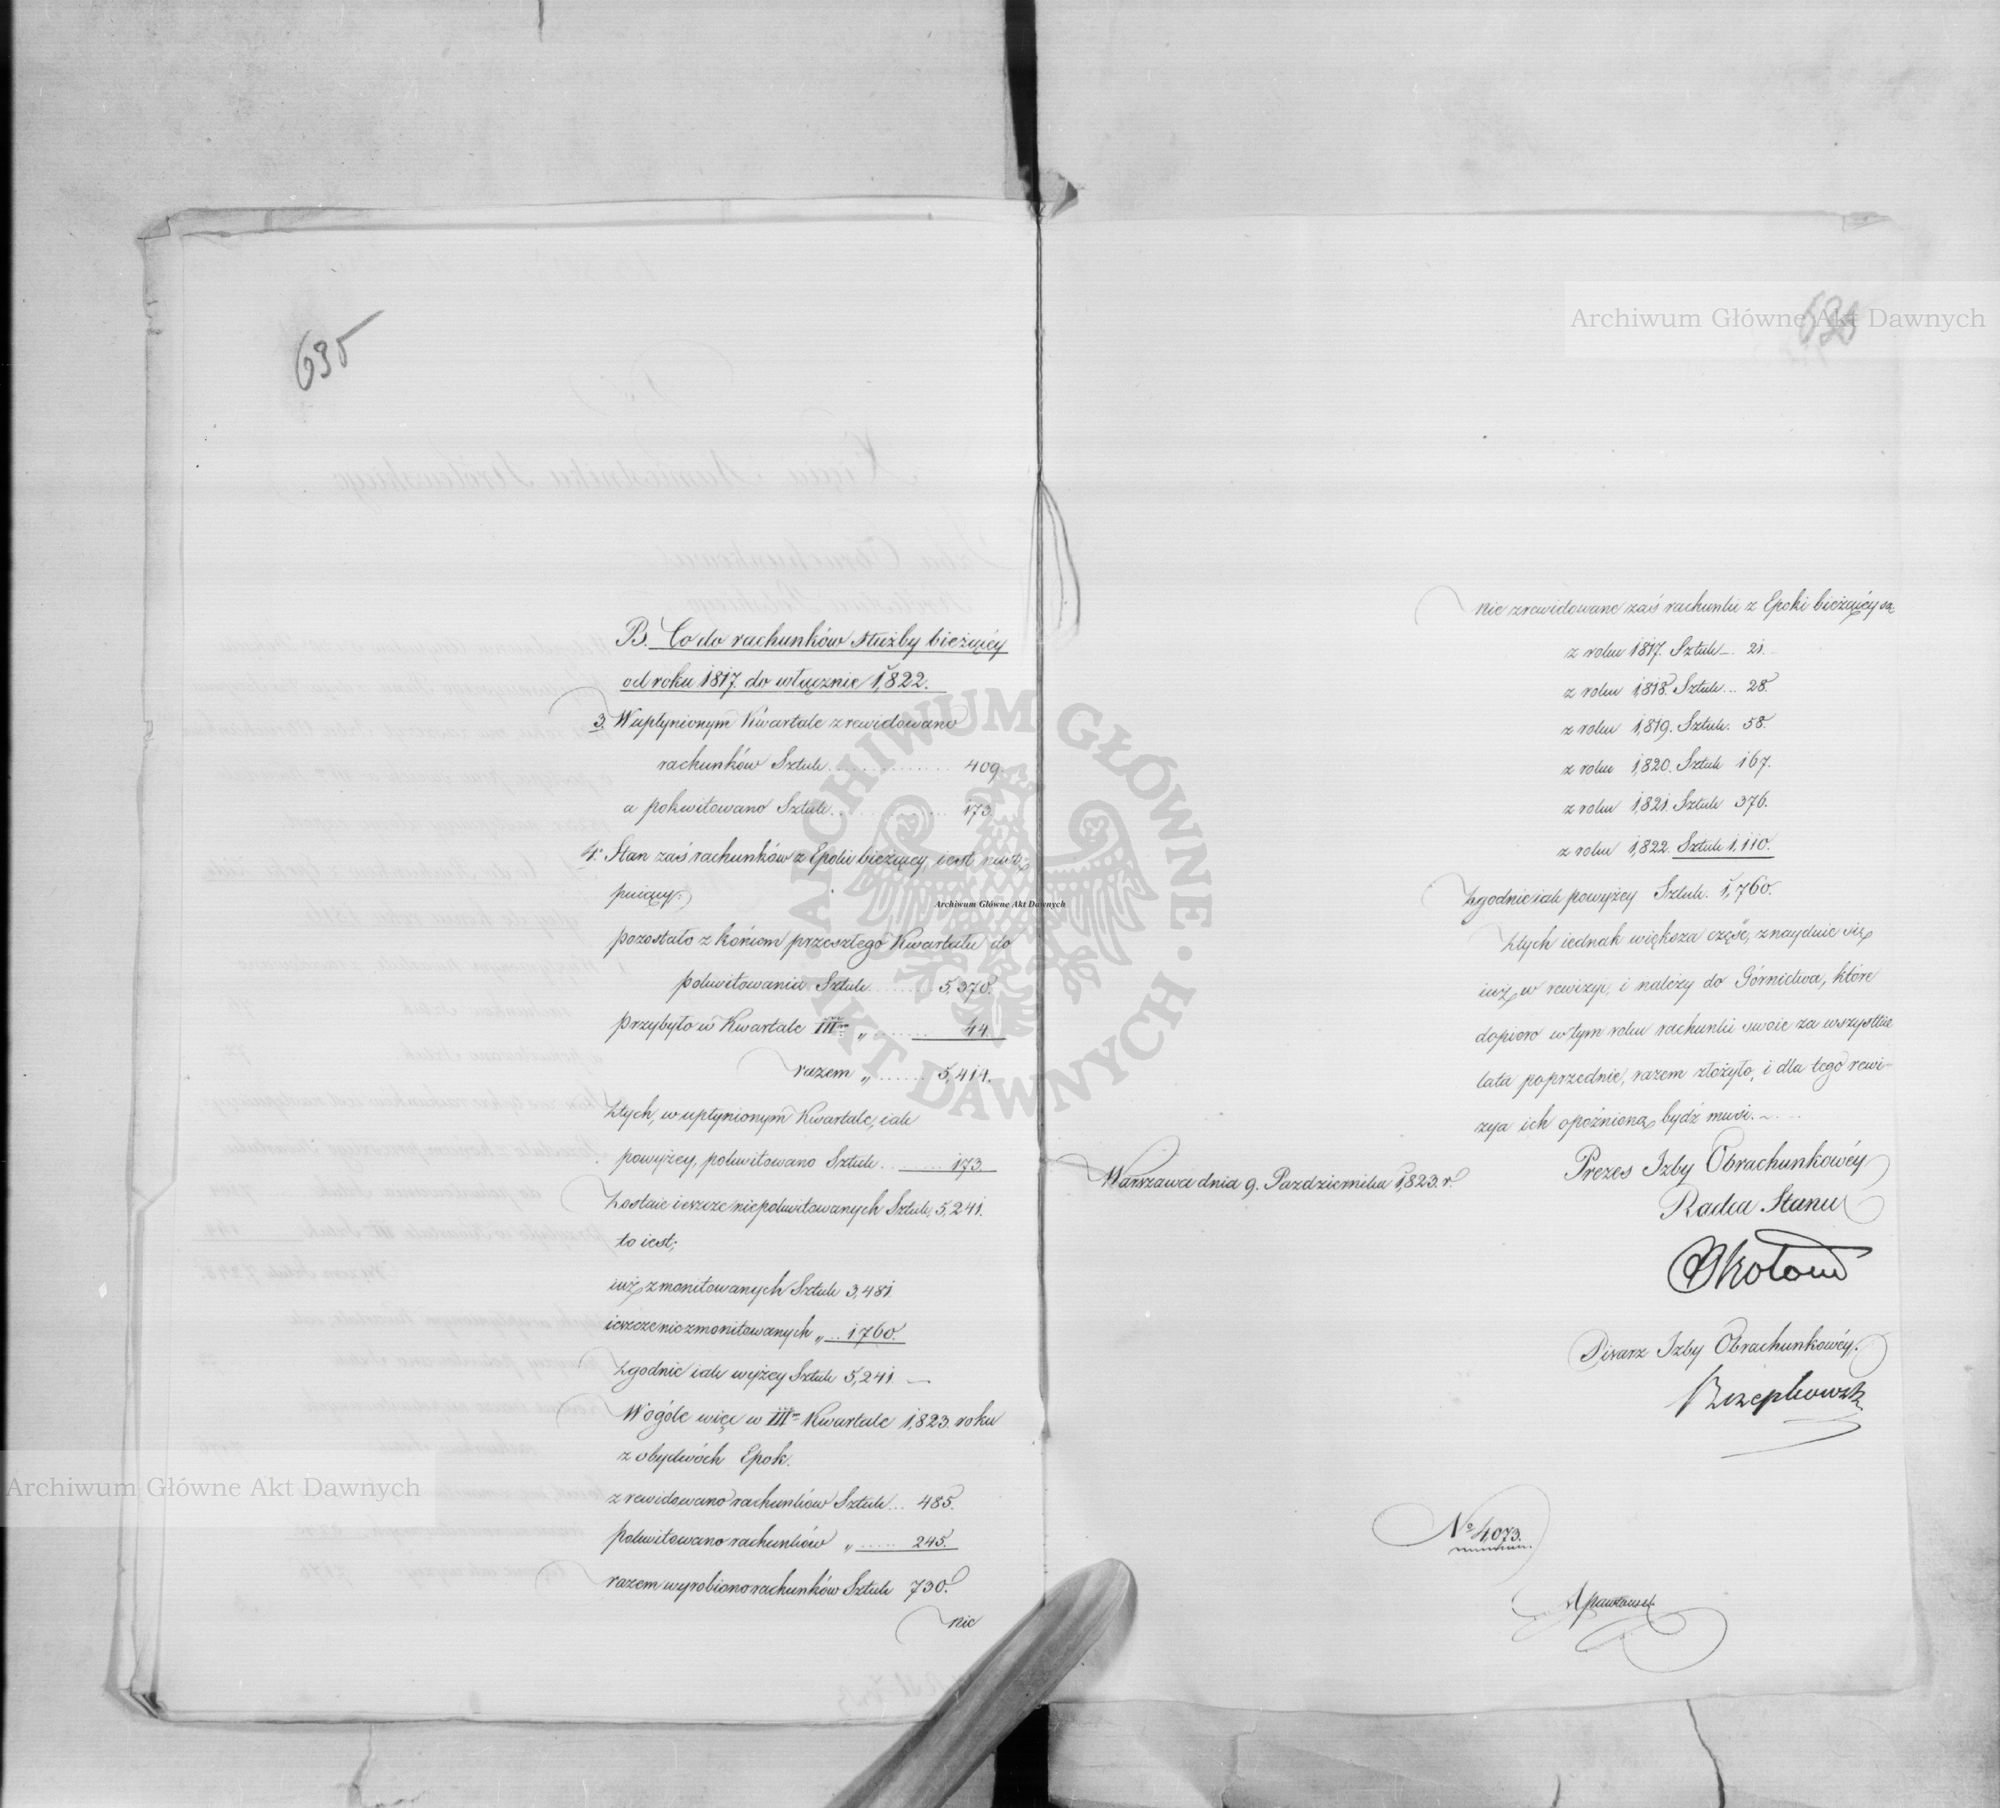 635
B. Co do rachunków służby bieżącéy
od roku 1817. do włącznie 1,822.
3. W upłynionym Kwartale zrewidowano
rachunków Sztuk ............ 409.
a pokwitowano Sztuk ............ 173.
4. Stan zaś rachunków z Epoki bieżącey, iest nastę-
puiący:
pozostało z końcem przeszłego Kwartału do
pokwitowania Sztuk ........ 5,370.
przybyło w Kwartale III " ....... 44.
razem " ....... 5,414.
Ztych, w upłynionym Kwartale, iak
powyżey, pokwitowano Sztuk ........ 173.
Zostaie ieszcze niepokwitowanych Sztuk, 5,241.
to iest;
iuż zmonitowanych Sztuk 3,481.
ieszcze niezmonitowanych " .. 1760.
Zgodnie iak wyżey Sztuk 5,241. —
W ogóle więc w III Kwartale 1,823. roku
z obydwóch Epok.
zrewidowano rachunków Sztuk ... 485.
pokwitowano rachunków " ..... 245.
razem wyrobiono rachunków Sztuk 730.
nie
nie zrewidowane zaś rachunki z Epoki bieżącéy są
z roku 1817. Sztuk .. 21.
z roku 1818. Sztuk ... 28.
z roku 1,819. Sztuk. 58.
z roku 1,820. Sztuk 167.
z roku 1,821. Sztuk 376.
z roku 1,822. Sztuk 1,110.
Zgodnie iak powyżey Sztuk. 1,760.
Ztych iednak większa część, znayduie się
iuż w rewizyi, i należy do Górnictwa, które
dopiero w tym roku rachunki swoie za wszystkie
lata poprzednie, razem złożyło, i dla tego rewi-
zya ich opóźnioną bydź musi. ~ ....
Warszawa dnia 9. Października 1,823. r.
Prezes Izby Obrachunkowéy
Radca Stanu
Pisarz Izby Obrachunkowéy.
No 4,073.
Archiwum Główne Akt Dawnych
Archiwum Główne Akt Dawnych
Archiwum Główne Akt Dawnych
· ARCHIWUM GŁÓWNE · AKT DAWNYCH